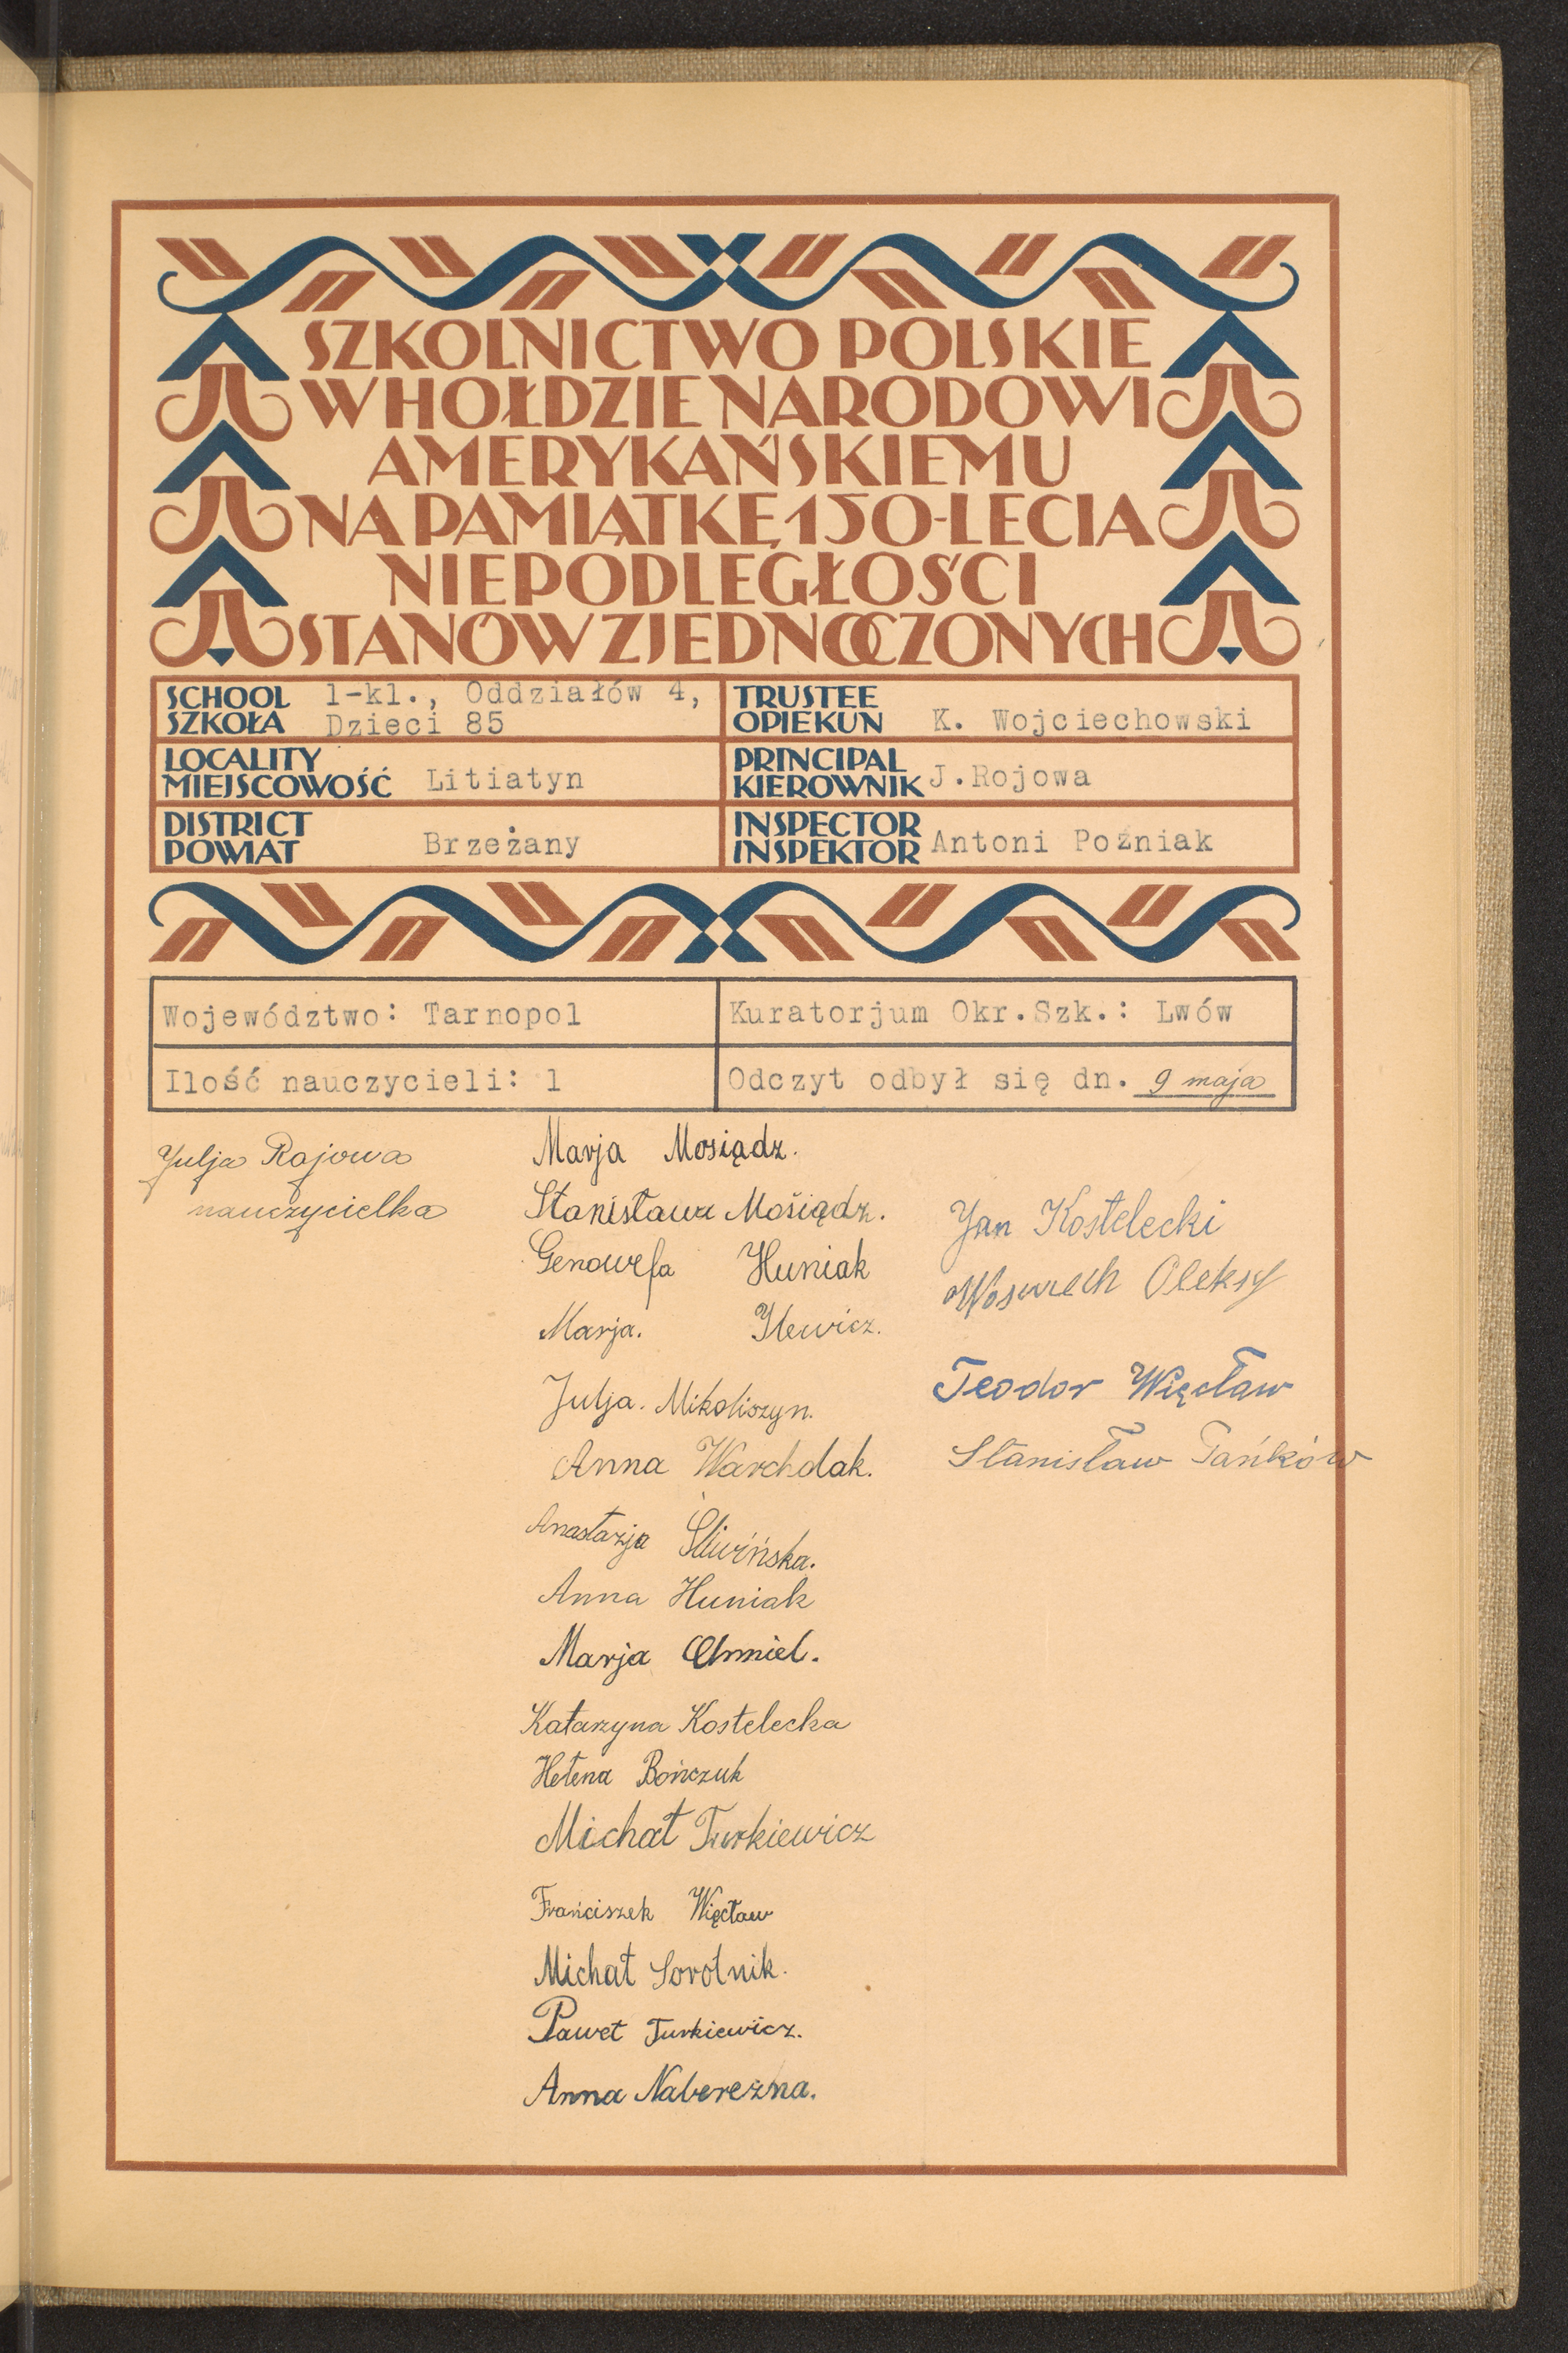 SZKOLNICTWO POLSKIE
W HOŁDZIE NARODOWI
AMERYKAŃSKIEMU
NA PAMIĄTKĘ 150-LECIA
NIEPODLEGŁOŚCI
STANÓW ZJEDNOCZONYCH
SCHOOL
SZKOŁA
1-kl., Oddziałów 4,
Dzieci 85
TRUSTEE
OPIEKUN
K. Wojciechowski
LOCALITY
MIEJSCOWOŚĆ
Litiatyn
PRINCIPAL
KIEROWNIK
J.Rojowa
DISTRICT
POWIAT
Brzeżany
INSPECTOR
INSPEKTOR
Antoni Poźniak
Województwo: Tarnopol
Kuratorjum Okr.Szk.: Lwów
Ilość nauczycieli: 1
Odczyt odbył się dn. 9 maja
Julja Rojowa
nauczycielka
Marja Mosiądz.
Stanisława Mosiądz.
Genowefa Huniak
Marja. Ilewicz.
Julja. Mikoliszyn.
Anna Warcholak.
Anastazja Śliwińska.
Anna Huniak
Marja Chmiel.
Katarzyna Kostelecka
Helena Bończuk
Michał Turkiewicz
Frańciszek Więcław
Michał Sorotnik.
Paweł Turkiewicz.
Anna Naberezna.
Jan Kostelecki
Oleksy
Teodor Więcław
Stanisław Tańków